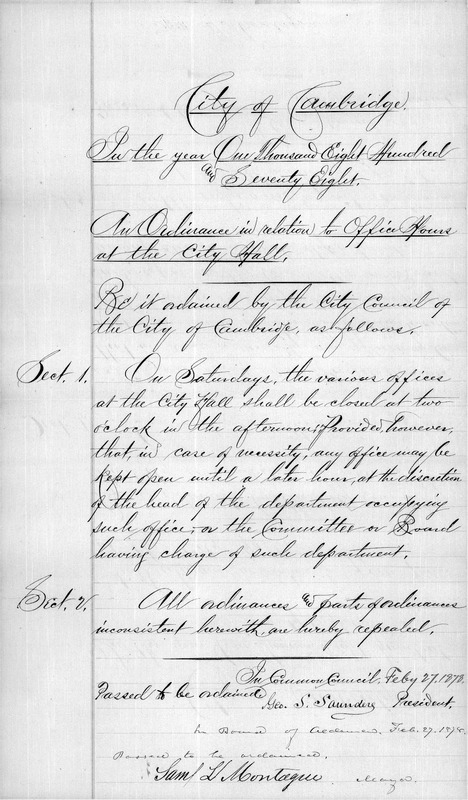 City of Cambridge.
In the year One Thousand Eight Hundred
and Seventy Eight.
An Ordinance in relation to Office Hours
at the City Hall.
Be it ordained by the City Council of
the City of Cambridge, as follows.
Sect. 1. On Saturdays, the various offices
at the City Hall shall be closed at two
o'clock in the afternoon; Provided, however,
that, in case of necessity, any office may be
kept open until a later hour, at the discretion
of the head of the department occupying
such office, or the Committee or Board
having charge of such department.
Sect. 2. All ordinances and parts of ordinances
inconsistent herewith, are hereby repealed.
In Common Council. Feby 27. 1878.
Passed to be ordained
Geo. S. Saunders President.
In Board of Aldermen. Feb. 27. 1878.
Passed to be ordained.
Saml L Montague Mayor.